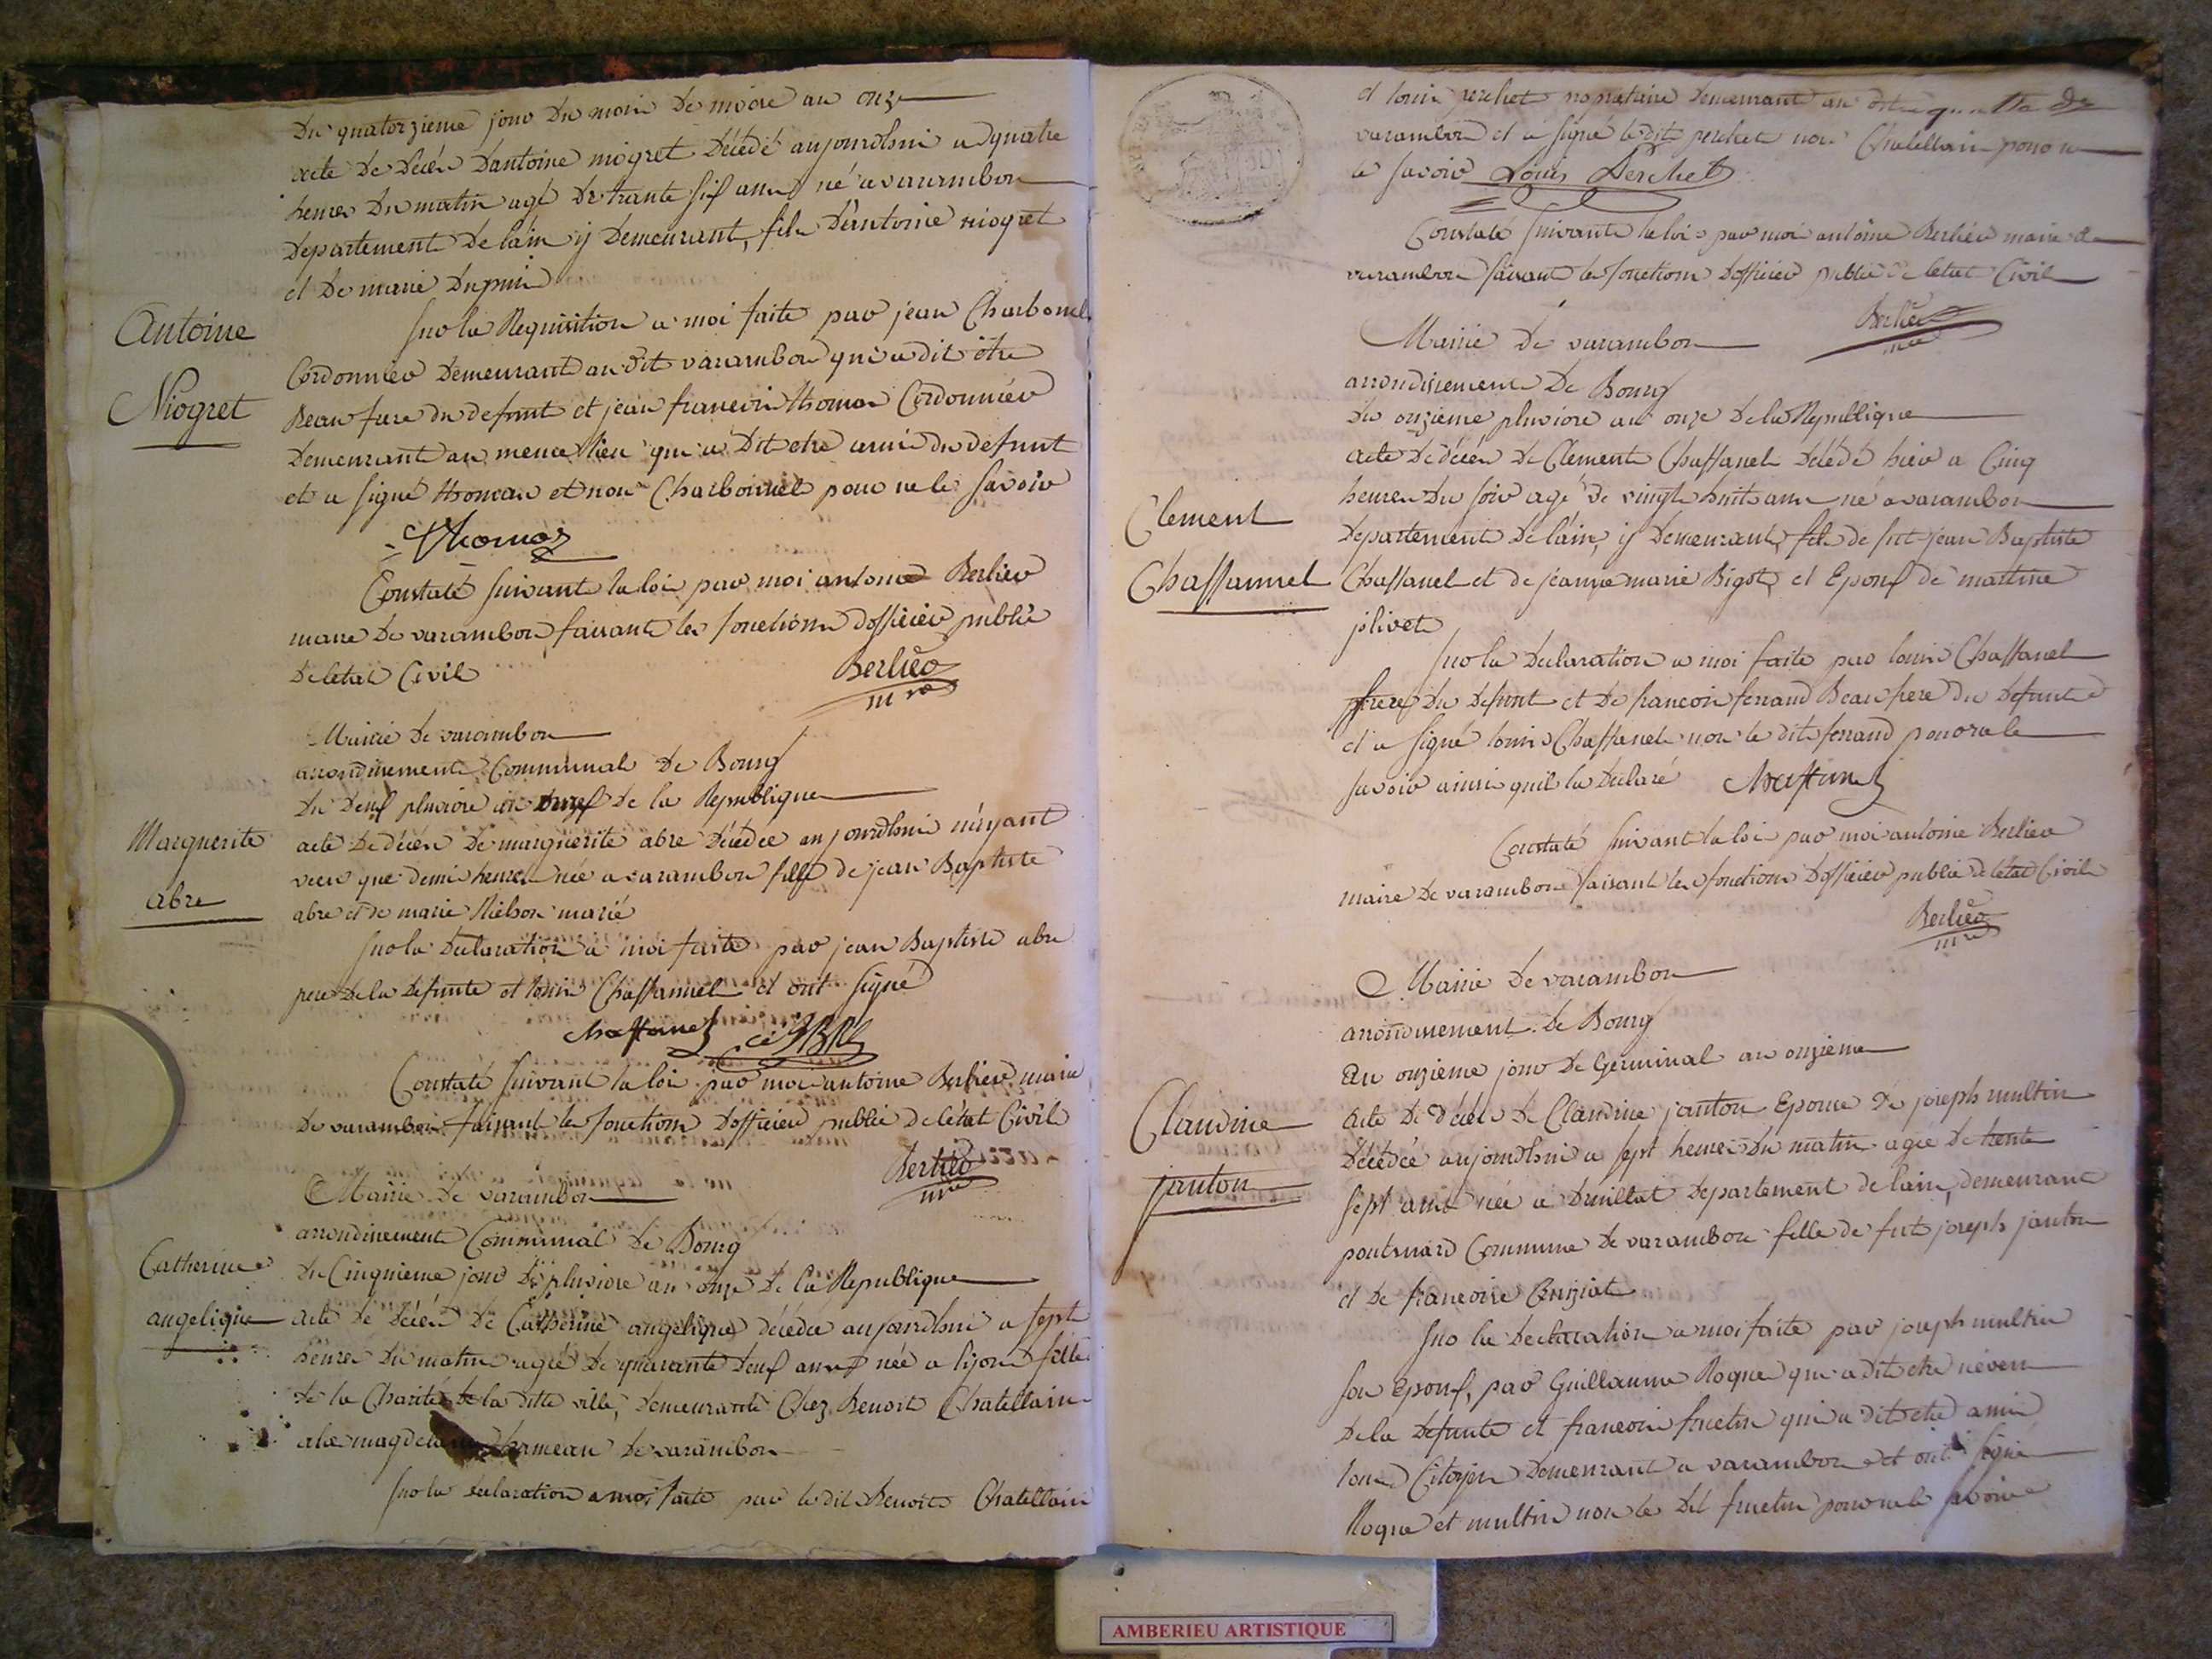 Du quatorzieme jour du mois de nivose an onze
acte de décés d'antoine niogret décédé aujourdhuy a quatre
heures du matin agé de trante six ans né a varambon
departement de lain y demeurant, fils d'antoine niogret
et de marie dupuis
Antoine
Niogret
sur la Requisition a moi faite par jean Charbonel
Cordonnier demeurant au dit varambon qui a dit être
Beau frere du defunt et jean francois thomas Cordonnier
demeurant au meme lieu qui a dit etre ami du defunt
et a signé thomas et non Charbonnel pour ne le savoir
Thomas
Constaté suivant la loi par moi antoine Berlier
maire de varambon faisant les fonctions dofficier public
de letat Civil
Berlier
mre
Mairie de varambon
arrondissement Communal de Bourg
du neuf pluviose an onze de la Republique
Marguerite
abre
acte de décés de marguerite abre décédée aujourdhui n'ayant
vecu que demi heure née a varambon fille de jean Baptiste
abre et de marie marié
sur la declaration a moi faite par jean Baptiste abre
pere de la defunte et louis Chaffannel et ont signé
Chaffanel ABRE
Constaté suivant la loi par moi antoine Berlier maire
de varambon faisant les fonctions dofficier public de létat Civil
Berlier
mre
Mairie de varambon
arrondissement Communal de Bourg
du Cinquieme jour de pluviose an onze de la Republique
Catherine
angelique
acte de décés de Catherine angelique décédée aujourdhui a sept
heures du matin agée de quarante neuf ans née a lyon fille
de la Charité de la ditte ville, demeurante Chez Benoit Chatellain
a la magdelaine hameau de varambon
sur la declaration a moi faite par le dit Benoit Chatellain
et louis perchet propriétaire demeurant au dit
varambon et a signé le dit perchet non Chatellain pour ne
le savoir Louis Perchet
Constaté suivant la loi par moi antoine Berlier maire de
varambon faisant les fonctions dofficier public de letat Civil
Berlier
mre
Mairie de varambon
arrondissement De Bourg
du onzieme pluviose an onze de la Republique
Clement
Chaffannel
acte de décés de Clement Chaffanel décédé hier a Cinq
heures du soir agé de vingt huit ans né a varambon
departement de láin, y demeurant, fils de fut jean Baptiste
Chaffanel et de jeanne marie Bigot, et Epoux de martine
jolivet
sur la declaration a moi faite par louis Chaffanel
frere du defunt et de francois ferrand Beau frere du defunt
et a signé louis Chaffanel non le dit ferrand pour ne le
savoir ainsi quil la declaré Chaffanel
Constaté suivant la loi par moi antoine Berlier
maire de varambon faisant les fonctions dofficier public de létat Civil
Berlier
mre
Mairie de varambon
arrondissement de Bourg
du onzieme jour de Germinal an onzieme
Claudine
janton
acte de décés de Claudine janton Epouse de joseph multin
décédée aujourdhui a sept heures du matin agée de trente
sept ans née a druillat departement de lain, demeurant
commune de varambon fille de fut joseph janton
et de francoise Cruiziat
sur la declaration a moi faite par joseph multin
son Epoux, par Guillaume Roque qui a dit etre neveu
de la defunte et francois fructin qui a dit etre ami
tous Citoyen demeurant a varambon et ont signé
Roque et multin non le dit fructin pour ne le savoir
AMBERIEU ARTISTIQUE